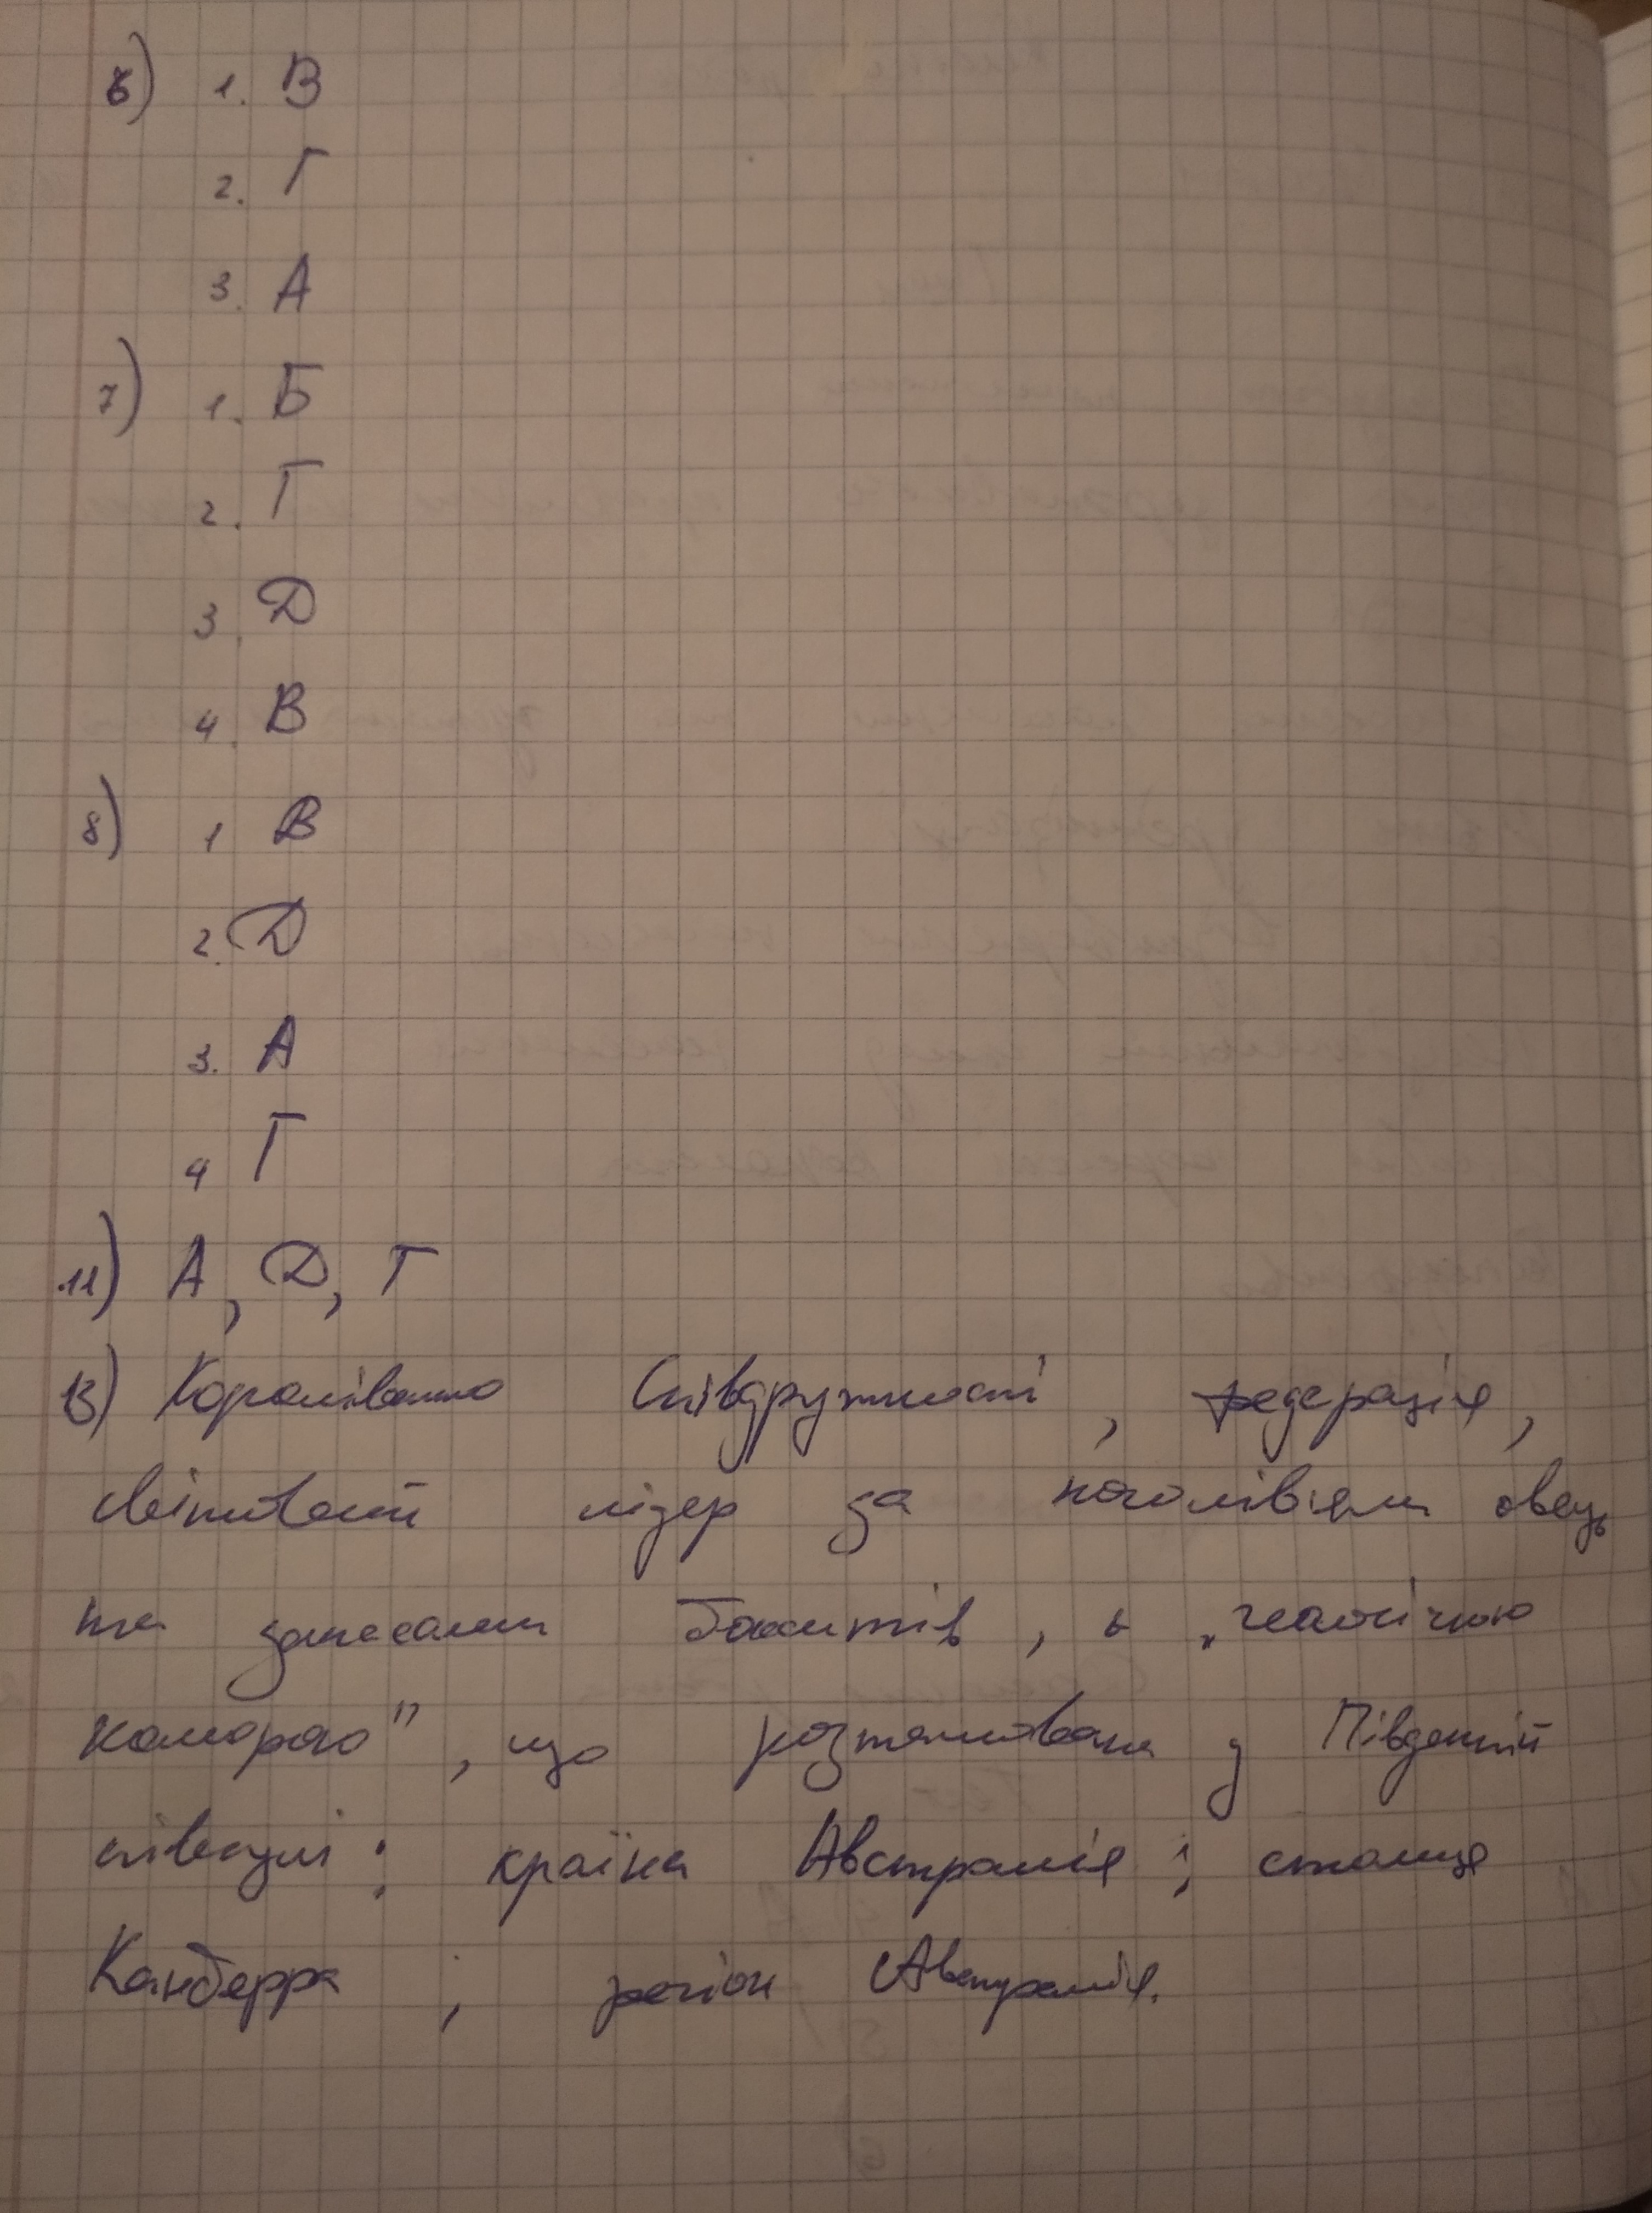 6) 1. В
2. Г
3. А
7) 1. Б
2. Г
3. Д
4. В
8) 1 В
2. Д
3. А
4 Г
11) А, Д, Г
13) Королівство Співдружності, федерація,
світовий лідер за поголів'ям овець
та запасами бокситів, є „чемічною
коморою", що розташована у Південній
півкулі; країна Австралія; столиця
Канберра; регіон Австралія.